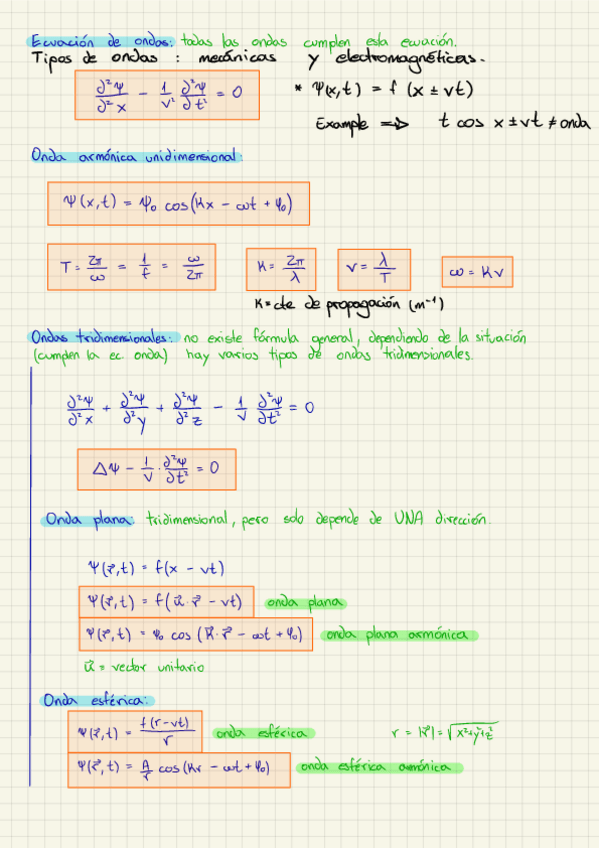 Ecuación de ondas: todas las ondas cumplen esta ecuación.
Tipos de ondas : mecánicas y electromagnéticas.
∂²Ψ/∂²x − 1/v² ∂²Ψ/∂t² = 0 * Ψ(x,t) = f (x ± vt)
Example => t cos x ± vt ≠ onda
Onda armónica unidimensional:
Ψ(x,t) = Ψ₀ cos(Kx − ωt + φ₀)
T = 2π/ω = 1/f = ω/2π K = 2π/λ v = λ/T ω = Kv
K = cte de propagación (m⁻¹)
Ondas tridimensionales: no existe fórmula general, dependiendo de la situación
(cumplen la ec. onda) hay varios tipos de ondas tridimensionales.
∂²Ψ/∂²x + ∂²Ψ/∂²y + ∂²Ψ/∂²z − 1/v ∂²Ψ/∂t² = 0
ΔΨ − 1/v · ∂²Ψ/∂t² = 0
Onda plana: tridimensional, pero solo depende de UNA dirección.
Ψ(r⃗,t) = f(x − vt)
Ψ(r⃗,t) = f(u⃗ · r⃗ − vt) onda plana
Ψ(r⃗,t) = Ψ₀ cos (K⃗ · r⃗ − ωt + φ₀) onda plana armónica
u⃗ = vector unitario
Onda esférica:
Ψ(r⃗,t) = f(r−vt)/r onda esférica r = |r⃗| = √x²+y²+z²
Ψ(r⃗,t) = A/r cos (Kr − ωt + φ₀) onda esférica armónica